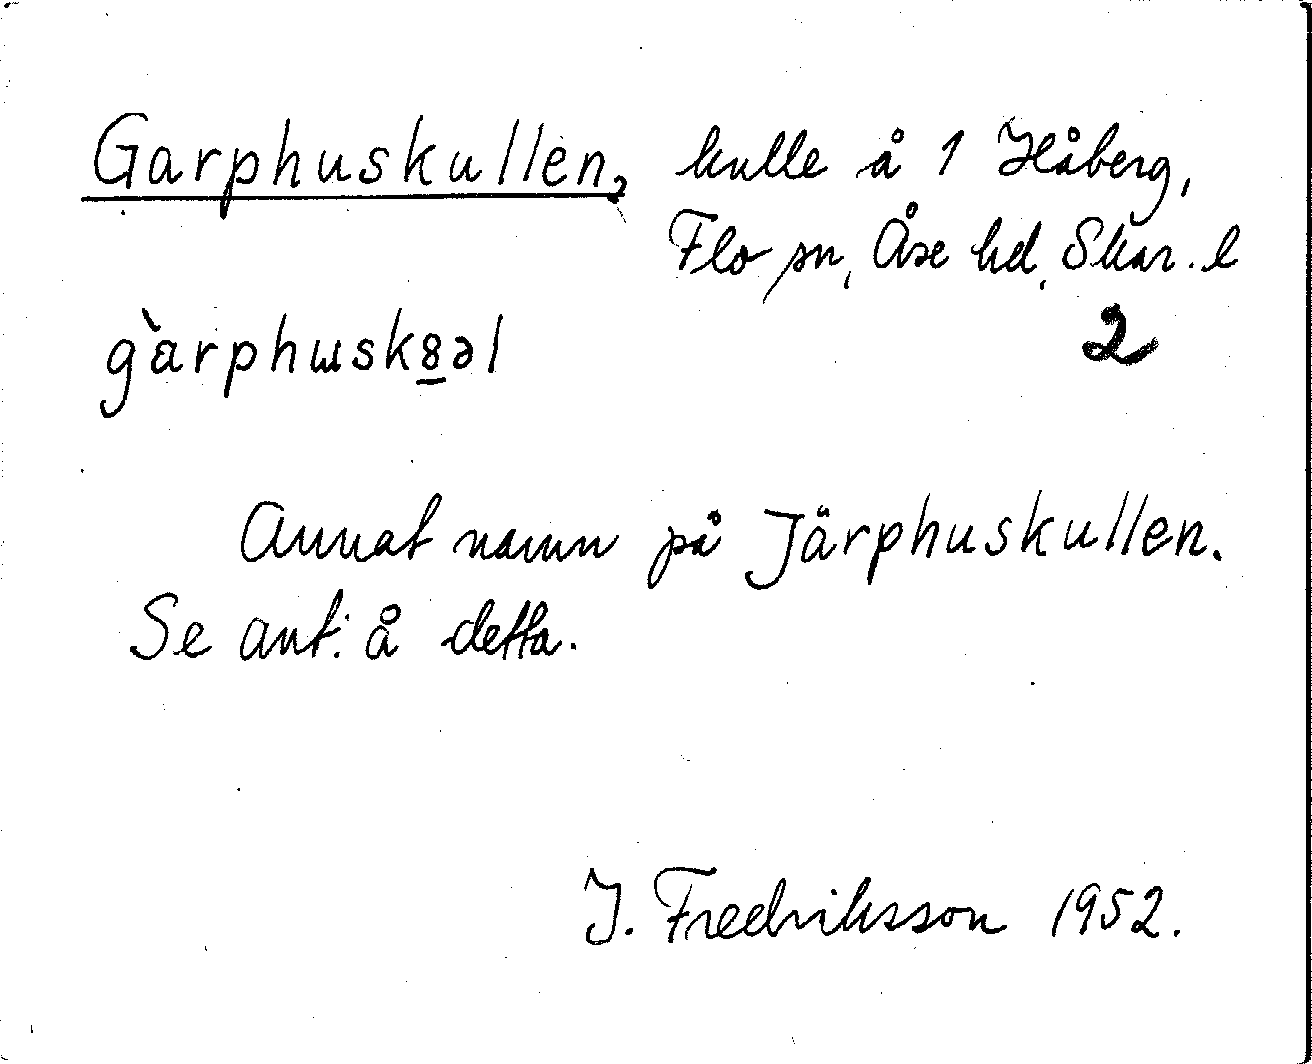 Garphuskullen, kulle å 1 Håberg,
Flo sn, Åse hd, Skar. l
2
gàrphusk8əl
Annat namn på Järphuskullen.
Se ant. å detta.
J. Fredriksson 1952.